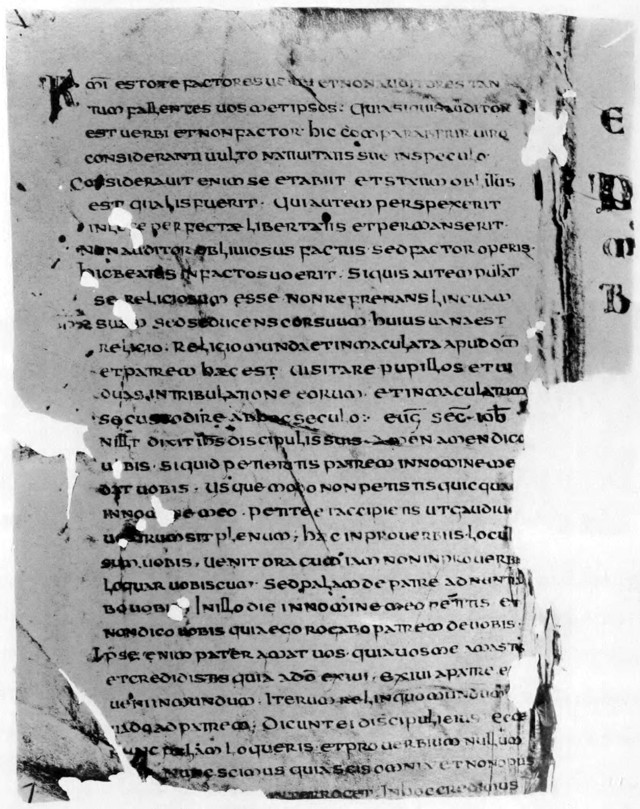 Kmi estote factores ue et non auditores tan
tum fallentes uosmetipsos: quia siquis auditor
est uerbi et non factor· hic comparabitur uiro
consideranti uulto natiuitatis sue in speculo·
Considerauit enim se et abiit et statim oblitus
est qualis fuerit· Qui autem perspexerit
in lege perfectæ libertatis et permanserit·
non auditor obliuiosus factus sed factor operis·
hic beatus in facto suo erit· Siquis autem putat
se religiosum esse non refrenans linguam
suam sed seducens cor suum huius uana est
religio: Religio munda et inmaculata apud dm
et patrem hæc est uisitare pupillos et ui
duas in tribulatione eorum· et inmaculatum
se custodire ab hoc seculo:· eug sec ioh
N illt dixit ihs discipulis suis· amen amen dico
uobis· siquid petieritis patrem in nomine me
dat uobis· Usque modo non petistis quicqua
in nomine meo· petite et accipietis ut gaudiu
uestrum sit plenum; hæc in prouerbiis locut
sum uobis· uenit ora cum iam non in prouerbi
loquar uobiscum· sed palam de patre adnuntia
bo uobis· In illo die in nomine meo petitis et
non dico uobis quia ego rogabo patrem de uobis·
Ipse enim pater amat uos· quia uos me amasti
et credidistis quia a do exiui· exiui a patre e
ueni in mundum· Iterum relinquo mundum
uado ad patrem; Dicunt ei discipuli eius ecce
nunc palam loqueris et prouerbium nullum
Nunc scimus quia scis omnia et non opus
interroget· In hoc credimus
E
D
m
B